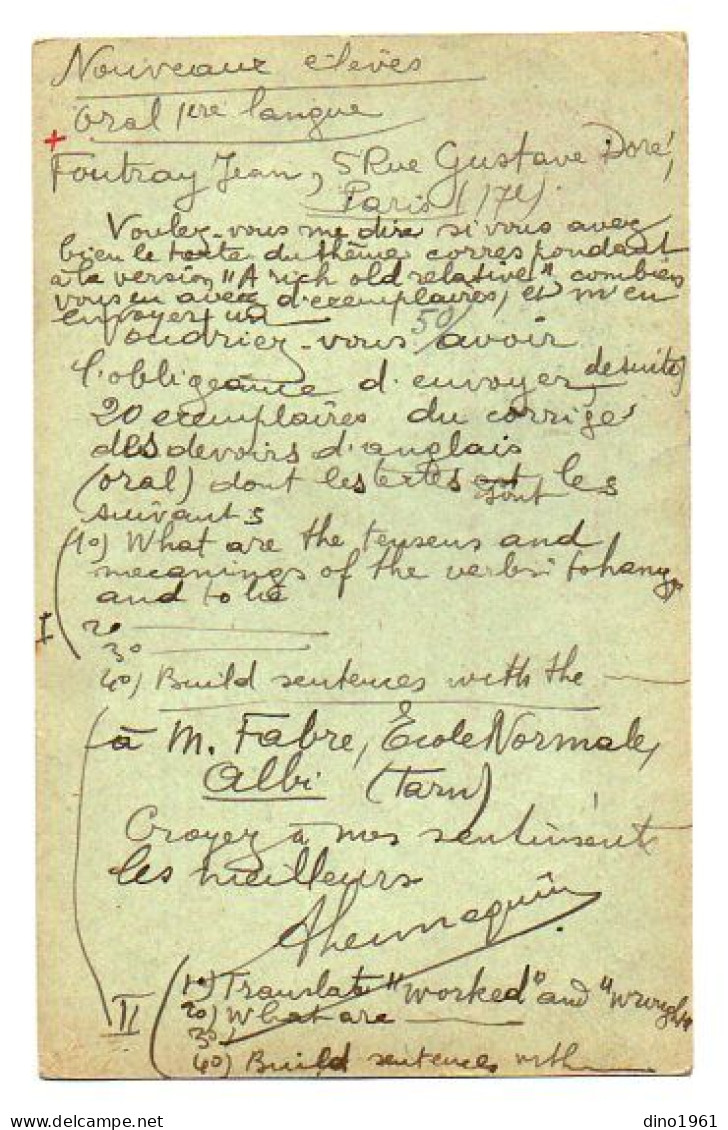 Nouveaux élèves
Oral 1ère langue
+
Foutray Jean, 5 Rue Gustave Doré,
Paris (17e).
Voulez-vous me dire si vous avez
bien le texte du thème correspondant
à la version "A rich old relative", combien
vous en avez d'exemplaires, et m'en
envoyer un
50/
Voudriez-vous avoir
l'obligeance d'envoyer, de suite,
20 exemplaires du corrigé
des devoirs d'anglais
(oral) dont les textes sont les
suivants
I
(1o) What are the tenses and
meanings of the verbs: to hang,
and to lie
2o
3o
4o) Build sentences with the
à M. Fabre, École Normale,
Albi (Tarn)
Croyez à mes sentiments
les meilleurs
II
(1o) Translate "worked" and
2o) What are
3o)
4o) Build sentences with
dino1961